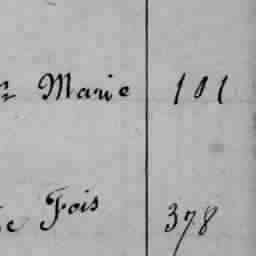 Marie 101
Fois 378